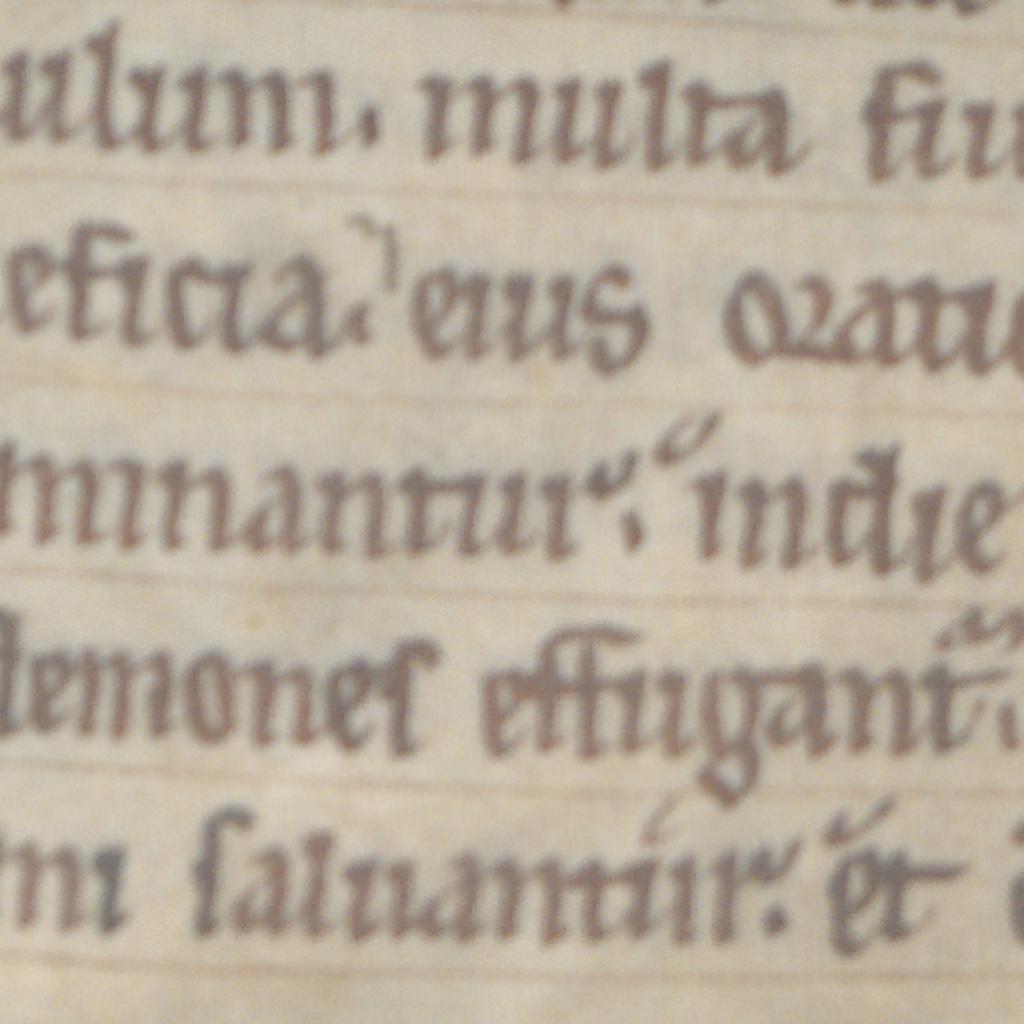 ulum. multa fiu
eficia. eius oratio
minantur. indie
demones effugant
ni saluantur. et